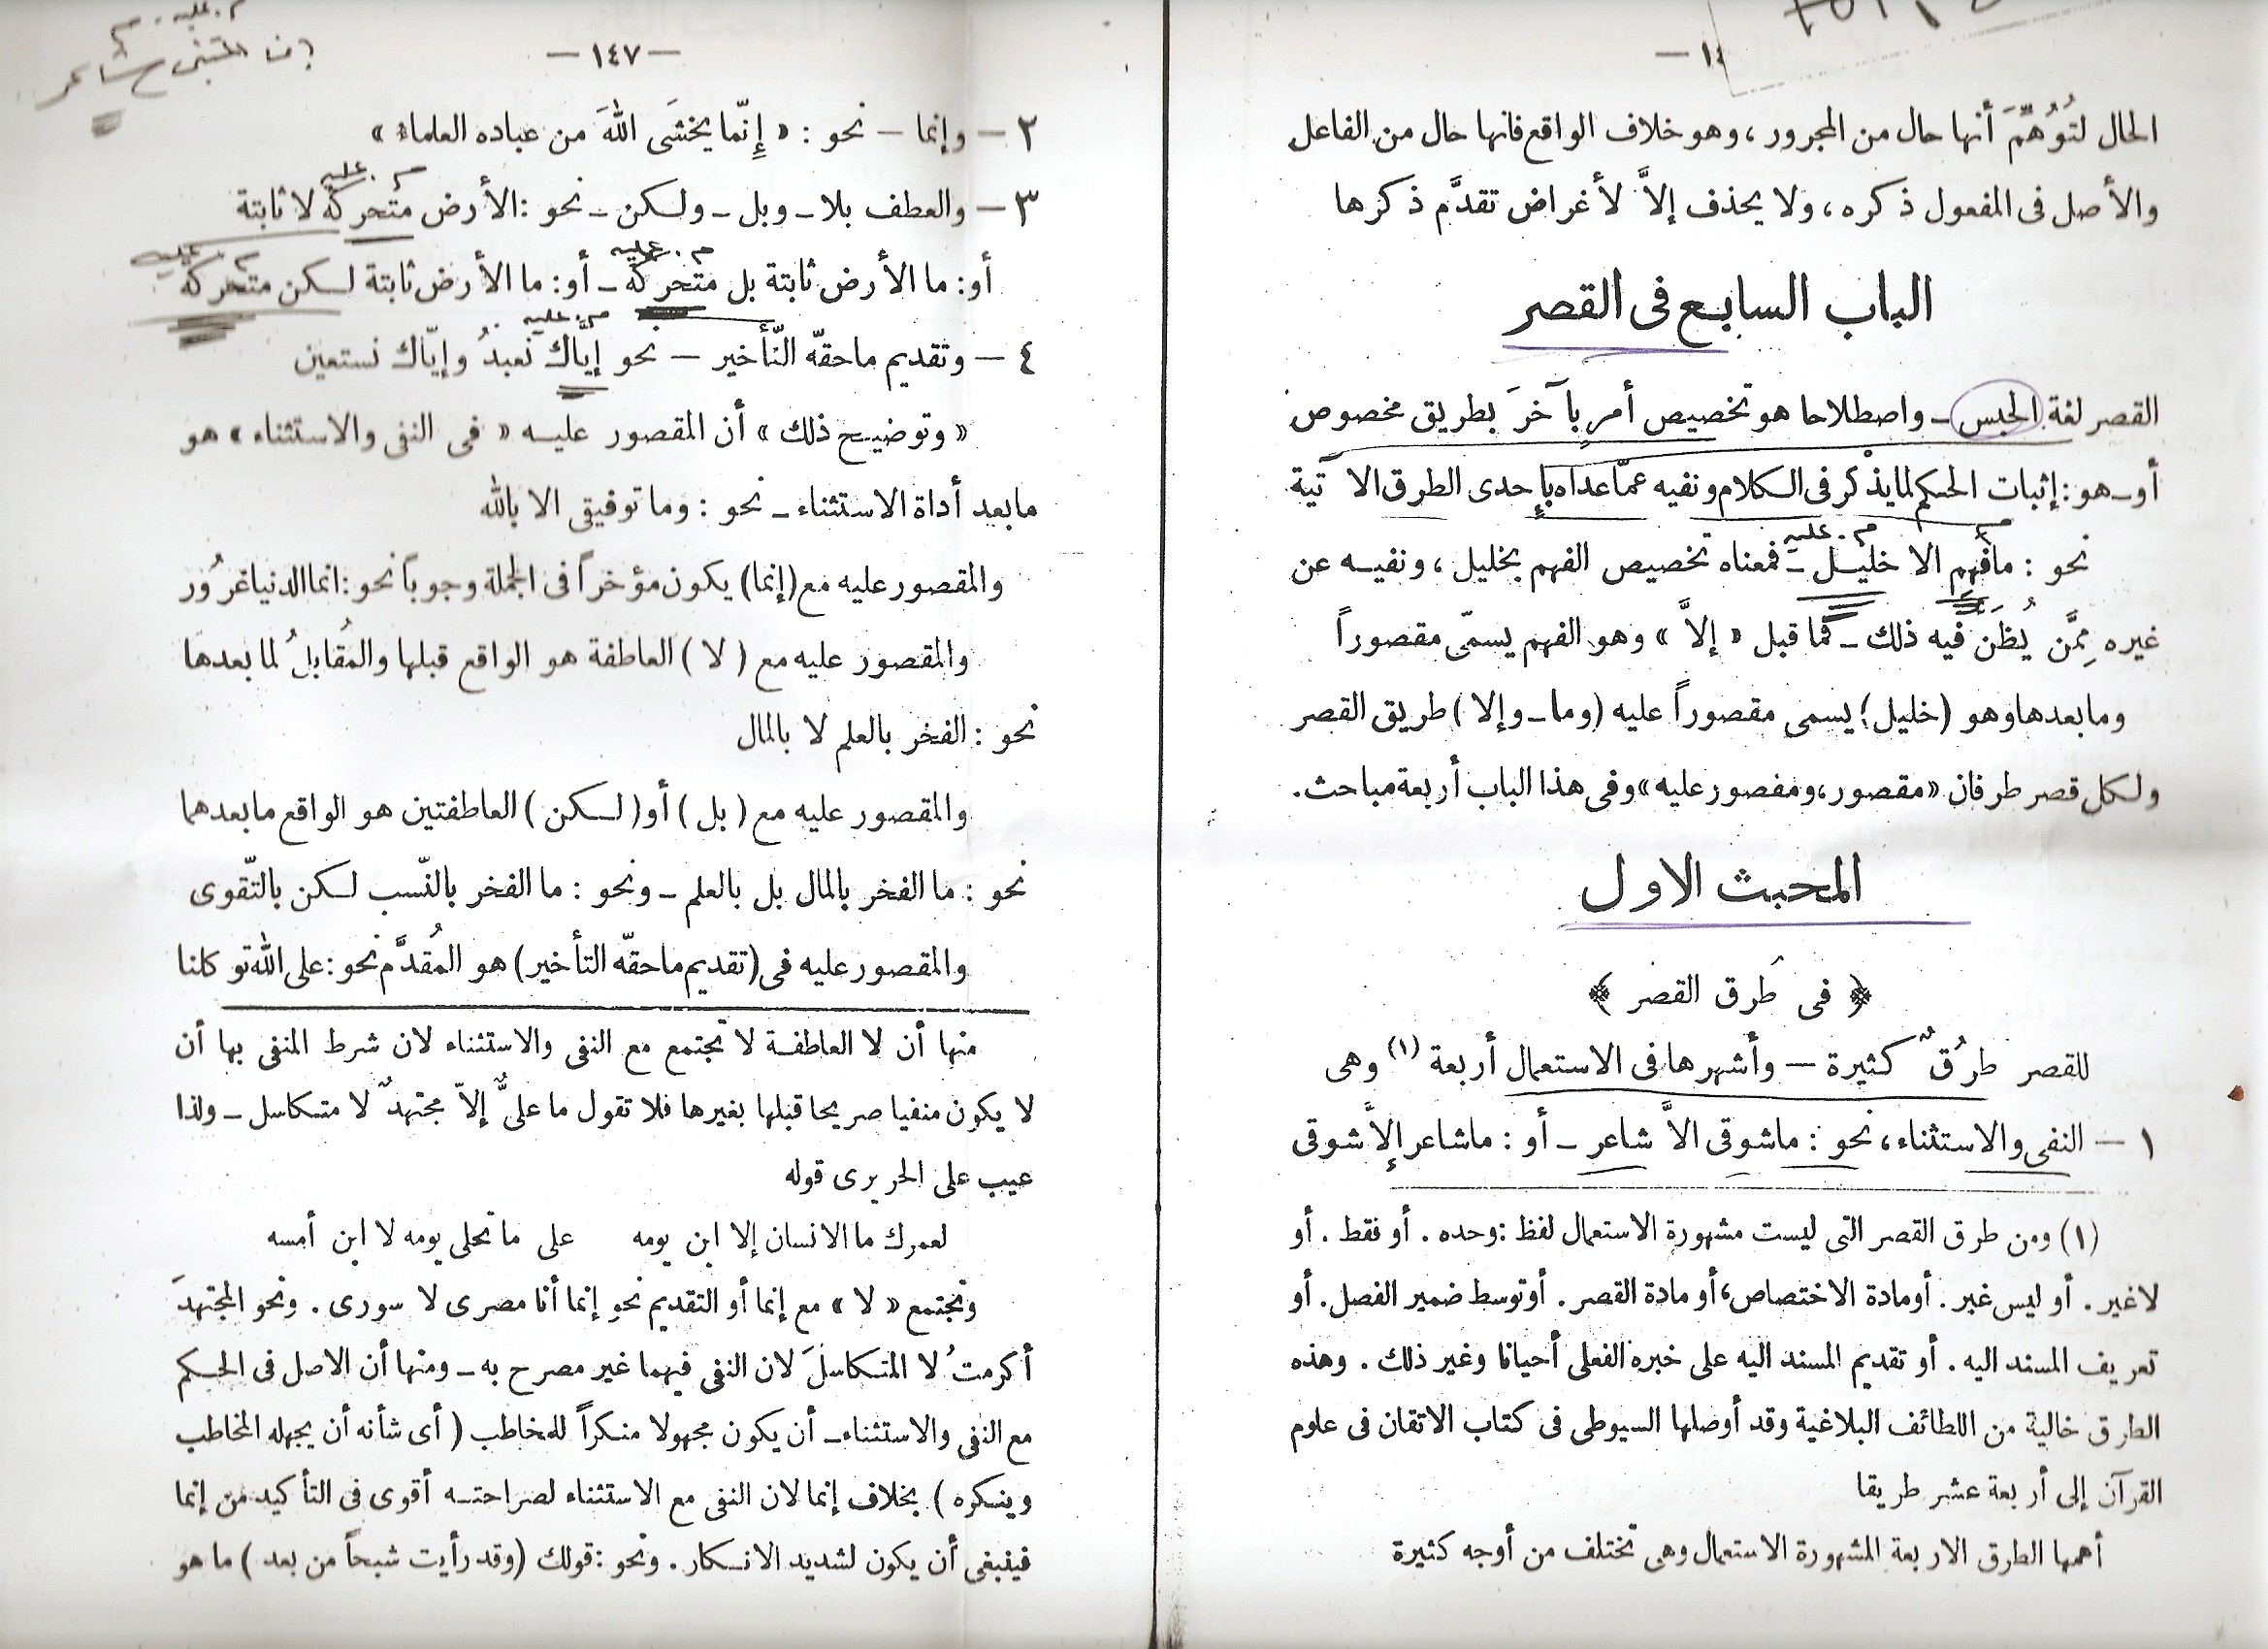 الحال لتُوُهِّمَ أنها حال من المجرور، وهو خلاف الواقع فانها حال من الفاعل
والأصل فى المفعول ذكره، ولا يحذف إلاَّ لأغراض تقدَّم ذكرها
الباب السابع فى القصر
القصر لغة الحبس ـ واصطلاحا هو تخصيص أمر بآخرَ بطريق مخصوص
أو ـ هو: إثبات الحكم لما يذكر فى الكلام ونفيه عمّا عداه بإحدى الطرق الآتية
م م. عليه
نحو : مافَهِم الا خليل ـ فمعناه تخصيص الفهم بخليل، ونفيه عن
غيره مِمَّن يُظَنّ فيه ذلك ـ فما قبل « إلاَّ » وهو الفهم يسمّى مقصوراً
وما بعدها وهو (خليل) يسمى مقصوراً عليه (وما ـ وإلا) طريق القصر
ولكل قصر طرفان «مقصور، ومقصور عليه» وفى هذا الباب أربعة مباحث.
المحبث الاول
﴿ فى طرق القصر ﴾
للقصر طرُقٌ كثيرة — وأشهرها فى الاستعمال أربعة (١) وهى
١ — النفى والاستثناء، نحو : ماشوقى الاَّ شاعر ـ أو : ماشاعر إلاَّ شوقى
(١) ومن طرق القصر التى ليست مشهورة الاستعمال لفظ : وحده . أو فقط . أو
لاغير . أو ليس غير . أو مادة الاختصاص، أو مادة القصر . أو توسط ضمير الفصل . أو
تعريف المسند اليه . أو تقديم المسند اليه على خبره الفعلى أحيانا وغير ذلك . وهذه
الطرق خالية من اللطائف البلاغية وقد أوصلها السيوطى فى كتاب الاتقان فى علوم
القرآن إلى أربعة عشر طريقا
أهمها الطرق الاربعة المشهورة الاستعمال وهى تختلف من أوجه كثيرة
— ١٤٧ —
م. عليه
٢ — وإنما — نحو : « إِنَّما يخشَى اللهَ من عباده العلماءُ »
م. عليه
٣ — والعطف بلا ـ وبل ـ ولكن ـ نحو : الأرض متحركة لا ثابتة
م. عليه م. عليه
أو: ما الأرض ثابتة بل متحركة ـ أو: ما الأرض ثابتة لكن متحركة
م. عليه
٤ — وتقديم ماحقّه التّأخير — نحو إيّاك نعبدُ وإيّاك نستعين
« وتوضيح ذلك » أن المقصور عليه « فى النفى والاستثناء » هو
مابعد أداة الاستثناء ـ نحو : وما توفيقى الا بالله
والمقصور عليه مع (إنما) يكون مؤخراً فى الجملة وجوباً نحو : انما الدنيا غرُور
والمقصور عليه مع ( لا ) العاطفة هو الواقع قبلها والمُقابلُ لما بعدها
نحو : الفخر بالعلم لا بالمال
والمقصور عليه مع ( بل ) أو ( لكن ) العاطفتين هو الواقع مابعدهما
نحو : ما الفخر بالمال بل بالعلم ـ ونحو : ما الفخر بالنّسب لكن بالتّقوى
والمقصور عليه فى (تقديم ماحقّه التأخير) هو المُقدَّم نحو : على الله توكلنا
منها أن لا العاطفة لا تجتمع مع النفى والاستثناء لان شرط المنفى بها أن
لا يكون منفيا صريحا قبلها بغيرها فلا تقول ما علىٌّ إلاّ مجتهدٌ لا متكاسل ـ ولذا
عيب على الحريرى قوله
لعمرك ما الانسان إلا ابن يومه على ما تجلى يومه لا ابن أمسه
وتجتمع « لا » مع إنما أو التقديم نحو إنما أنا مصرى لا سورى . ونحو المجتهدَ
أكرمتُ لا المتكاسلَ لان النفى فيهما غير مصرح به ـ ومنها أن الاصل فى الحكم
مع النفى والاستثناء ـ أن يكون مجهولا منكراً للمخاطب ( أى شأنه أن يجهله المخاطب
وينكره ) بخلاف إنما لان النفى مع الاستثناء لصراحته أقوى فى التأكيد من إنما
فينبغى أن يكون لشديد الانكار . ونحو : قولك (وقد رأيت شبحاً من بعد ) ما هو